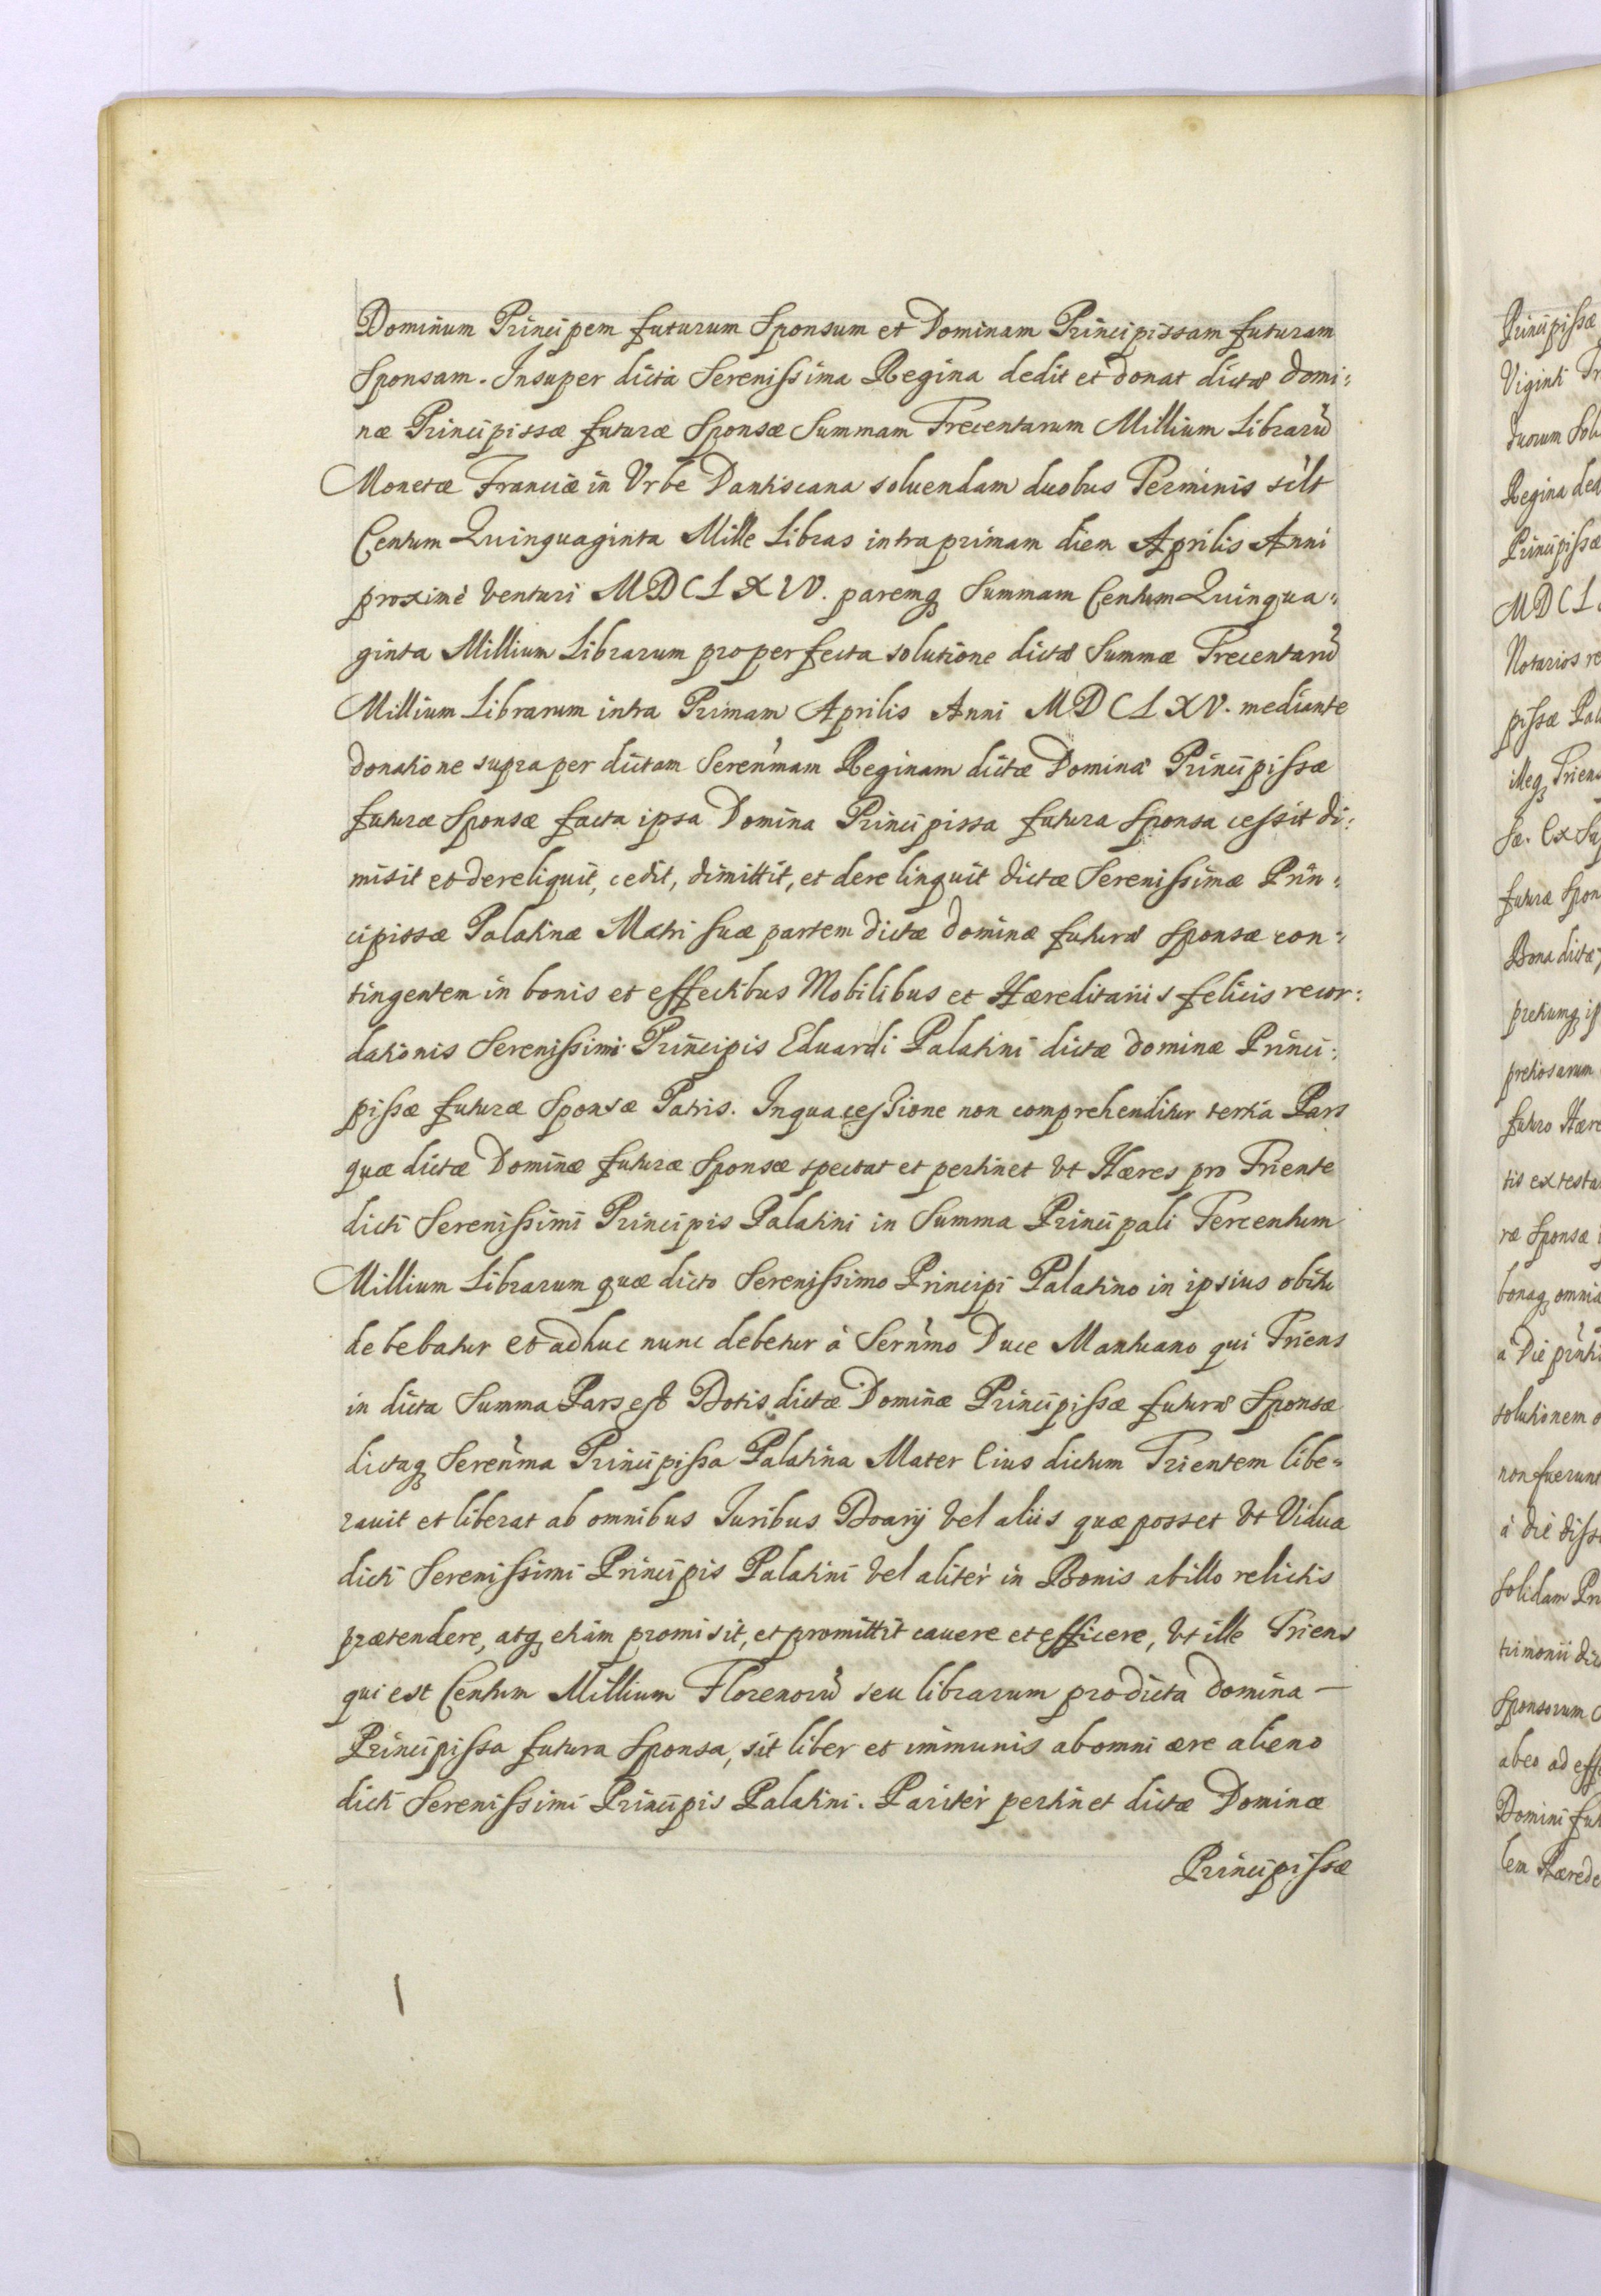 Dominum Principem futurum Sponsum et Dominam Principissam futuram
Sponsam. Insuper dicta Serenissima Regina dedit et donat dictæ Domi:
næ Principissæ futuræ Sponsæ Summam Trecentarum Millium Librarũ
Monetæ Franciæ in Vrbe Dantiscana soluendam duobus Terminis silt
Centum Quinquaginta Mille Libras intra primam diem Aprilis Anni
proximè venturi MDCLXIV. paremq Summam Centum Quinqua:
ginta Millium Librarum pro perfecta solutione dictæ Summæ Trecentarũ
Millium Librarum intra Primam Aprilis Anni MDCLXV. mediante
donatione supra per dictam Serenmam Reginam dictæ Dominæ Principissæ
futuræ Sponsæ facta ipsa Domina Principissa futura Sponsa cessit di:
misit et dereliquit, cedit, dimittit, et derelinquit dictæ Serenissimæ Prin:
cipissæ Palatinæ Matri suæ partem dictæ dominæ futuræ Sponsæ con:
tingentem in bonis et effectibus Mobilibus et Hæreditariis felicis recor:
dationis Serenissimi Principis Eduardi Palatini dictæ dominæ Princi:
pissæ futuræ Sponsæ Patris. In qua cessione non comprehenditur tertia Pars
quæ dictæ Dominæ futuræ Sponsæ spectat et pertinet vt Hæres pro Triente
dicti Serenissimi Principis Palatini in Summa Principali Tercentum
Millium Librarum quæ dicto Serenissimo Principi Palatino in ipsius obitu
debebatur et adhuc nunc debetur à Sernmo Duce Mantuano qui Triens
in dicta Summa Pars est Dotis dictæ Dominæ Principissæ futuræ Sponsæ
dictaq Serenma Principissa Palatina Mater Eius dictum Trientem libe:
rauit et liberat ab omnibus Iuribus Doarij vel aliis quæ posset vt Vidua
dicti Serenissimi Principis Palatini vel alitèr in Bonis ab illo relictis
prætendere, atq etiàm promisit, et promittit cauere et efficere, vt ille Triens
qui est Centum Millium Florenorũ seu librarum pro dicta domina —
Principissa futura Sponsa, sit liber et immunis ab omni ære alieno
dicti Serenissimi Principis Palatini. Paritèr pertinet dictæ Dominæ
Principissæ
Principissæ
Viginti
duorum
Regina
Principissæ
MDCL
Notarios
pissæ
illeq
futuræ
Bona dictæ
pretiosarum
futuro
tis ex
ræ Sponsæ
bonaq omnia
solutionem
non fuerunt
solidam
Sponsorum
Domini